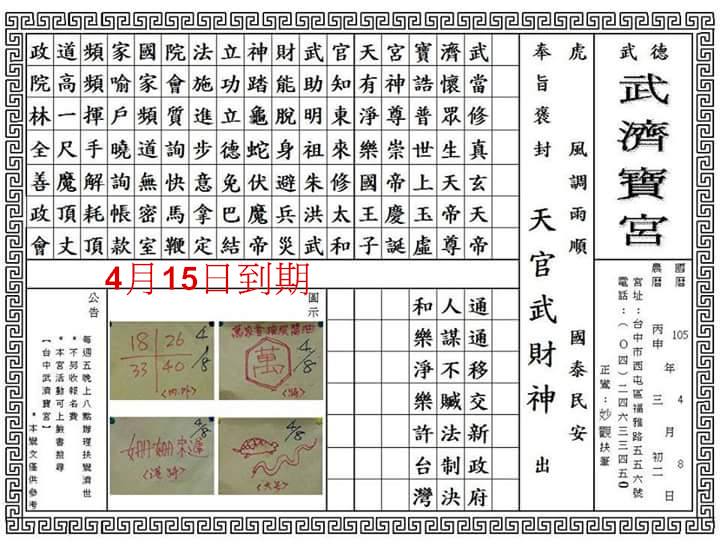 武德
武濟寶宮
國曆 105 年 4 月 8 日
農曆 丙申 年 三 月 初二 日
宮址：台中市西屯區福雅路五五六號
電話：(０四)二四六三三四五0
正鸞：妙觀扶筆
虎 風調雨順 國泰民安
奉旨褒封 天官武財神 出
武當修真玄天帝
濟懷眾生天帝尊
寶誥普世上玉虛
宮神尊崇帝慶誕
天有淨樂國王子
官知東來修太和
武助明祖朱洪武
財能脫身避兵災
神踏龜蛇伏魔帝
立功立德免巴結
法施進步意拿定
院會質詢快馬鞭
國家頻道無密室
家喻戶曉詢帳款
頻頻揮手解耗頂
道高一尺魔頂丈
政院林全善政會
通通移交新政府
人謀不贓法制決
和樂淨樂許台灣
4月15日到期
圖示
萬
4/8
18 26
33 40
4/8
4/8
4/8
公告
每週五晚上八點辦理扶鸞濟世
*不另收報名費
*本宮活動可上臉書搜尋
【台中武濟寶宮】
*本鸞文僅供參考